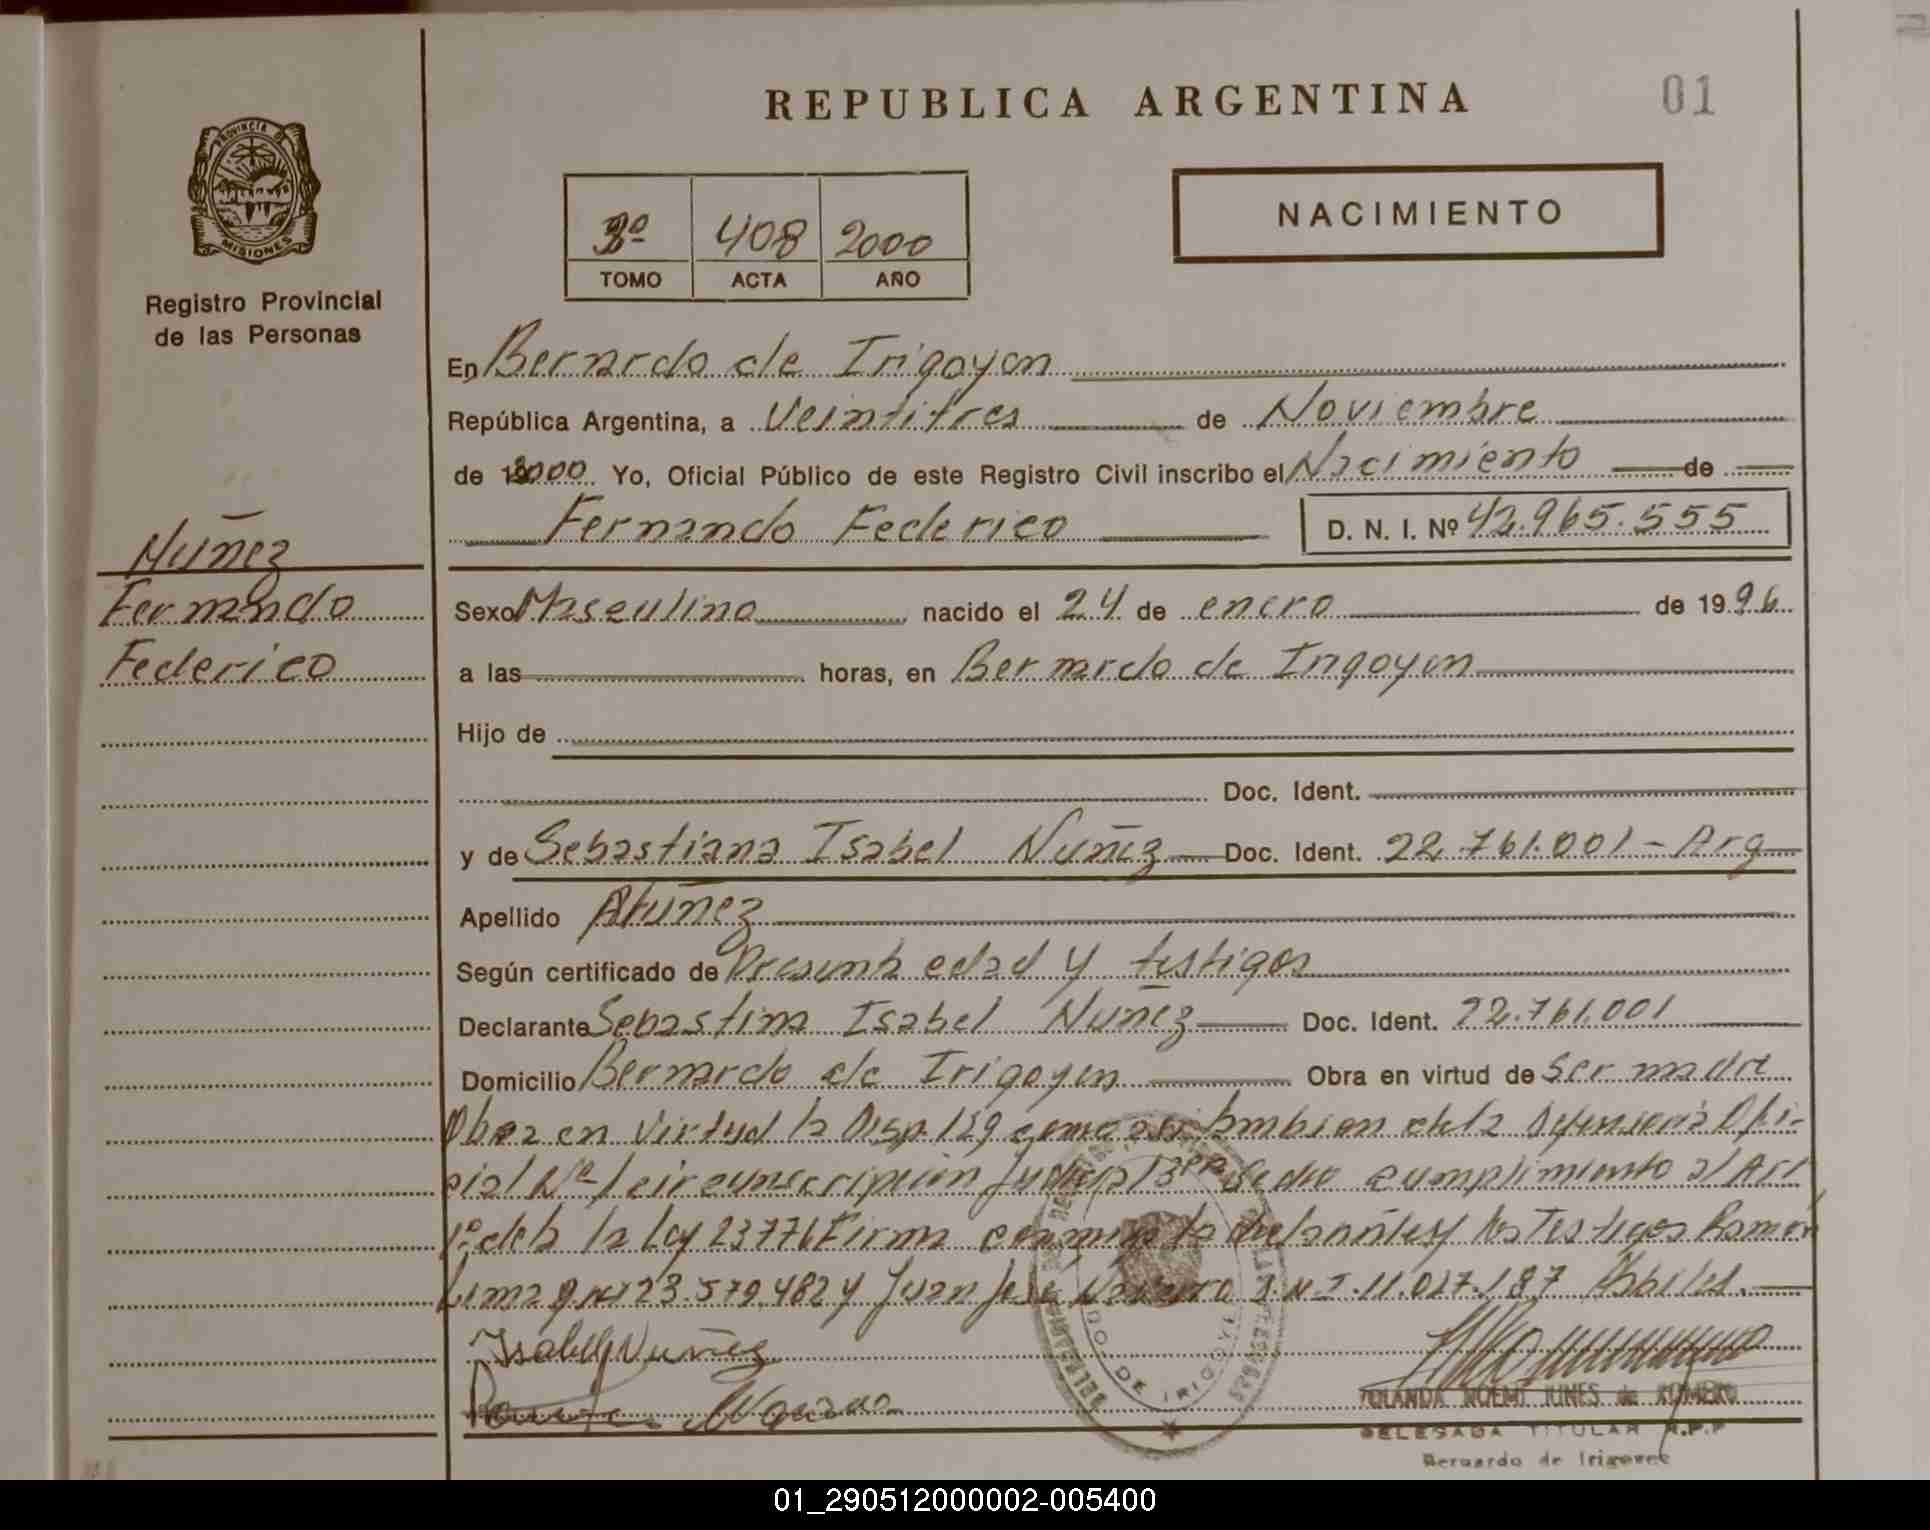 REPUBLICA ARGENTINA
01
PROVINCIA DE
MISIONES
Registro Provincial
de las Personas
408 2000
TOMO ACTA AÑO
NACIMIENTO
En Bernardo de Irigoyen
República Argentina, a Veintitres de Noviembre
de 2000 Yo, Oficial Público de este Registro Civil inscribo el Nacimiento de
Fernando Federico D. N. I. Nº 42.965.555
Nuñez
Fernando
Federico
Sexo Masculino nacido el 24 de enero de 1996
a las horas, en Bernardo de Irigoyen
Hijo de
Doc. Ident.
y de Sebastiana Isabel Nuñez Doc. Ident. 22.761.001 - Arg
Apellido Nuñez
Según certificado de Presunta edad y testigos
Declarante Sebastiana Isabel Nuñez Doc. Ident. 22.761.001
Domicilio Bernardo de Irigoyen Obra en virtud de Ser madre
Obra en virtud la Disp. 159 como asi tambien de la Defensoria Ofi-
cial Nº 1 circunscripción Judicial 3ra cumplimiento al Art
1º de la Ley 23776 Firma conmigo la declarante y los Testigos Ramón
Lima 23.579.482 y Juan José Navarro D.N.I. 11.027.187 Habiles.
Isabel Nuñez
YOLANDA NOEMI JUNES de ROMERO
DELEGADA TITULAR R.P.P
Bernardo de Irigoyen
DO DE IRIGOYE
01_290512000002-005400